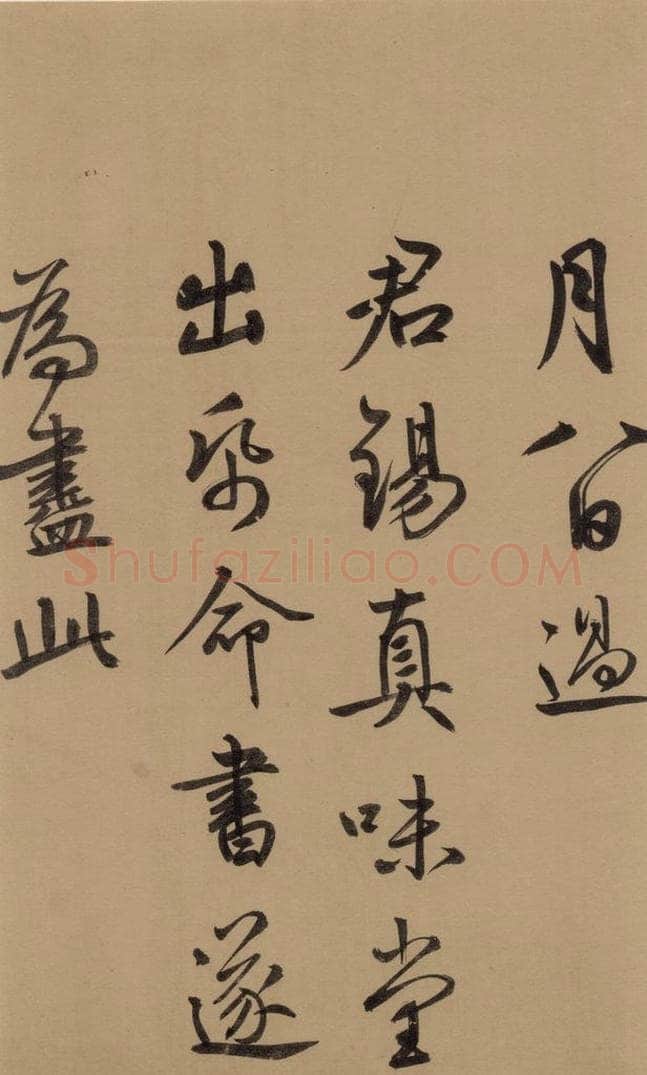 月八日過
君錫真味堂
出帋命書遂
為盡此
Shufaziliao.COM